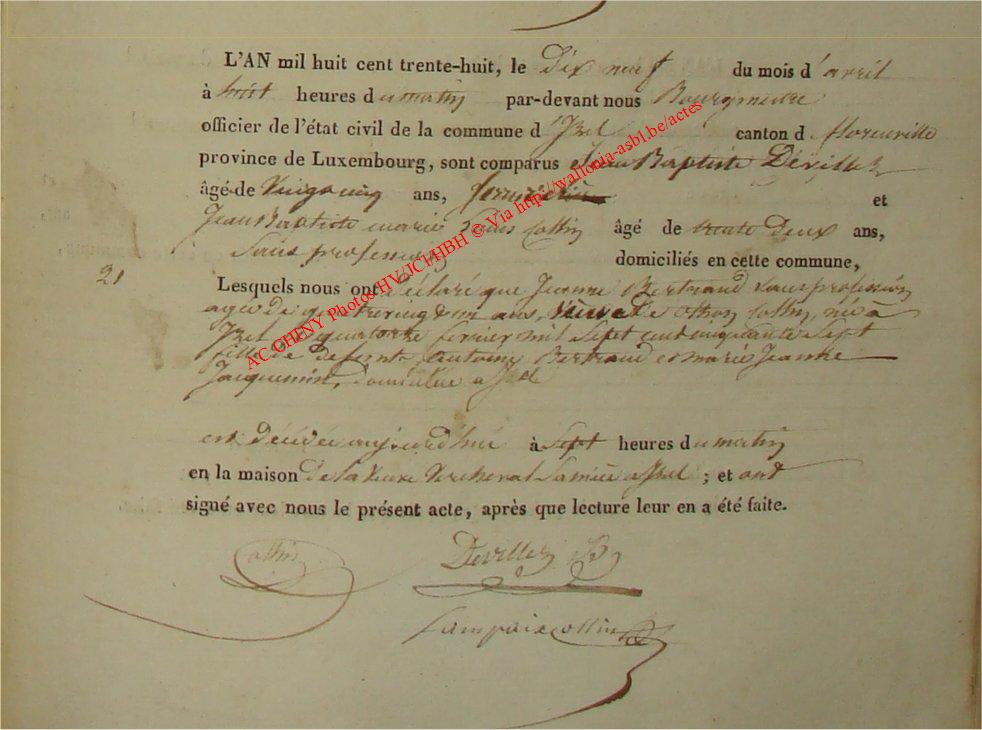 L'AN mil huit cent trente-huit, le Dix neuf du mois d'avril
à huit heures du matin par-devant nous Bourgmestre
officier de l'état civil de la commune d'Izel canton d florenville
province de Luxembourg, sont comparus Jean Baptiste Dévillez
âgé de Vingt cinq ans, et
Jean Baptiste marie Collin âgé de trente Deux ans,
Sans profession domiciliés en cette commune,
21
Lesquels nous ont déclaré que Jeanne Bertrand Sans profession
agée de quatre vingt un ans, veuve de othon Collin, née à
Izel le quatorze fevrier mil Sept cent cinquante Sept
fille de defunts antoine Bertrand et marie Jeanne
Jacquemin, domiciliée a Izel
est décédée aujourd'hui à Sept heures du matin
en la maison de la veuve a Izel ; et ont
signé avec nous le présent acte, après que lecture leur en a été faite.
Collin Devillez B
Lampaix collin
AC CHINY Photos HV/JCI/HBH © Via http://wallonia-asbl.be/actes